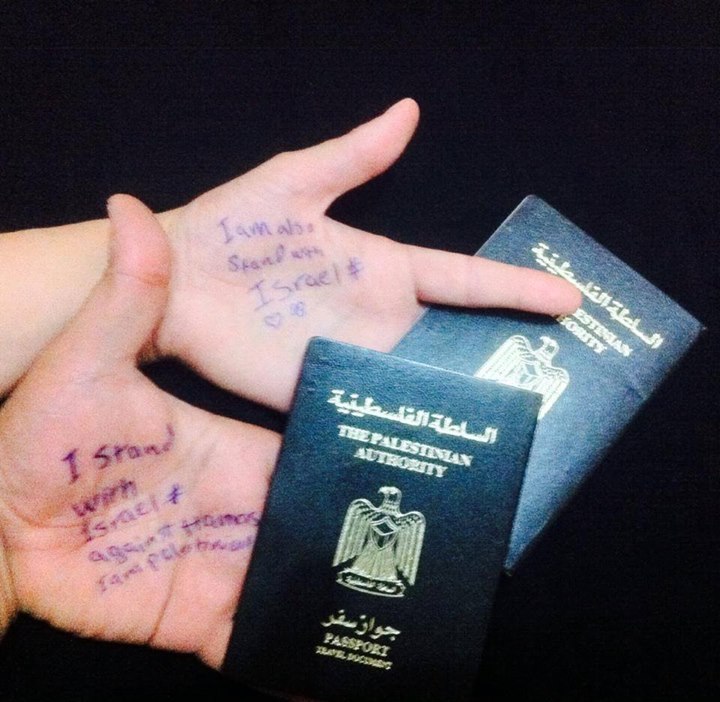 I am also
Stand with
Israel #
I stand
with
Israel #
against Hamas
I am palestinian
السلطة الفلسطينية
THE PALESTINIAN
AUTHORITY
السلطة الفلسطينية
جواز سفر
PASSPORT
TRAVEL DOCUMENT
السلطة الفلسطينية
PALESTINIAN